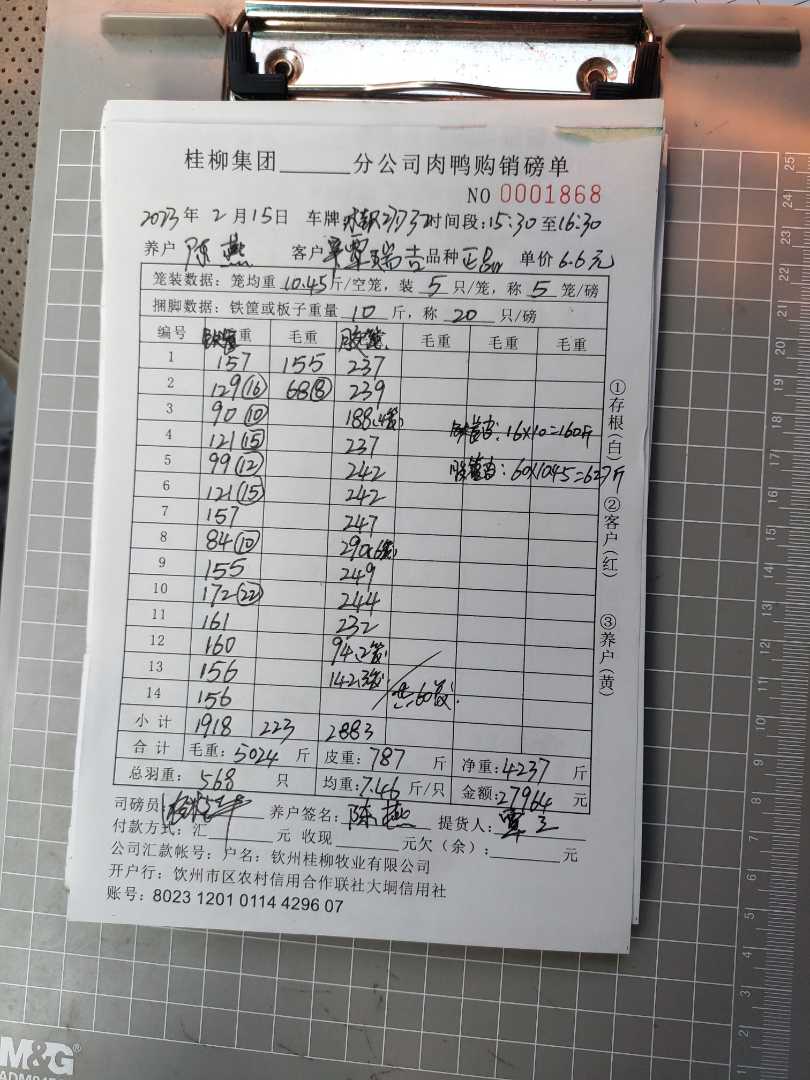 桂柳集团______分公司肉鸭购销磅单
NO 0001868
2023年2月15日 车牌 时间段:15:30至16:30
养户 陈燕 客户 覃瑞吉 品种 正品 单价 6.6元
笼装数据: 笼均重 10.45 斤/空笼, 装 5 只/笼, 称 5 笼/磅
捆脚数据: 铁筐或板子重量 10 斤, 称 20 只/磅
编号 铁笼重 毛重 胶笼 毛重 毛重 毛重
1 157 155 237
2 129(16) 68(8) 239
3 90(10) 188(4笼)
4 121(15) 237 铁笼: 16×10=160斤
5 99(12) 242 胶笼: 60×10.45=627斤
6 121(15) 242
7 157 247
8 84(10) 290(6笼)
9 155 249
10 172(22) 244
11 161 232
12 160 94(2笼)
13 156 142(3笼)
14 156 共:60笼
小计 1918 223 2883
合计 毛重: 5024 斤 皮重: 787 斤 净重: 4237 斤
总羽重: 568 只 均重: 7.46 斤/只 金额: 27964 元
司磅员: 养户签名: 陈燕 提货人: 覃
付款方式: 汇______元 收现______元欠(余):______元
公司汇款帐号: 户名: 钦州桂柳牧业有限公司
开户行: 钦州市区农村信用合作联社大垌信用社
账号: 8023 1201 0114 4296 07
①存根(白)
②客户(红)
③养户(黄)
M&G